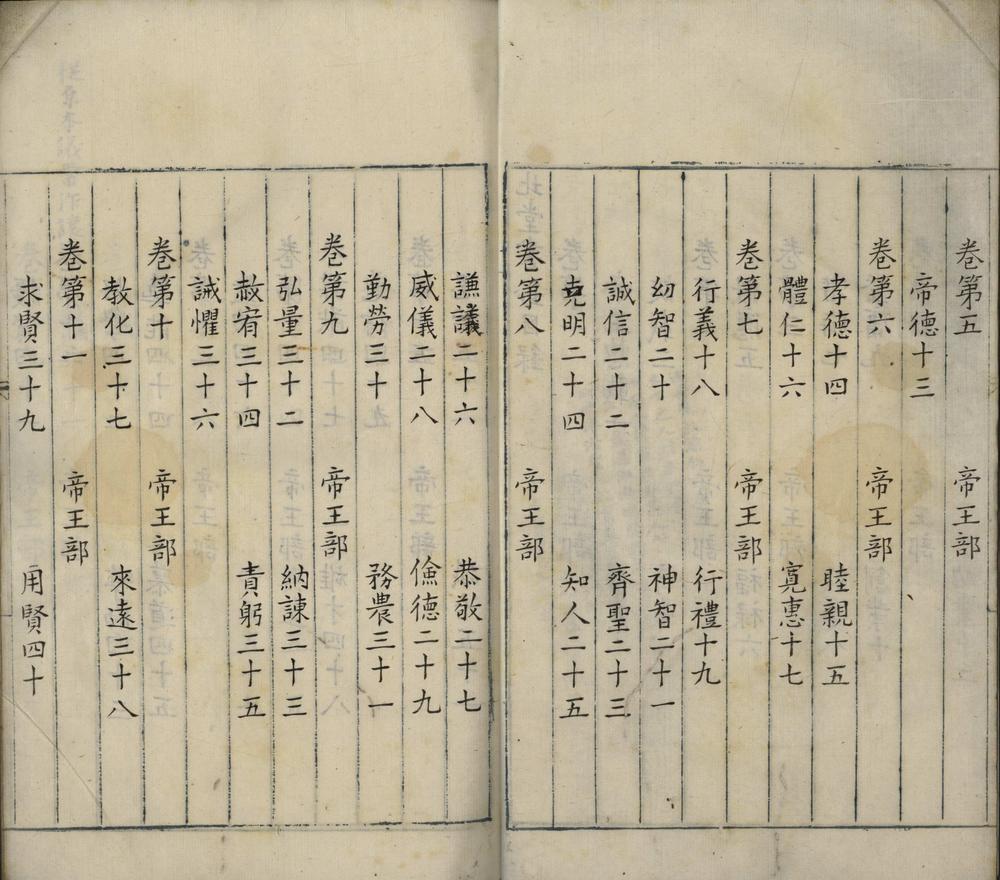 卷第五 帝王部
帝德十三
卷第六 帝王部
孝德十四 睦親十五
體仁十六 寬惠十七
卷第七 帝王部
行義十八 行禮十九
幼智二十 神智二十一
誠信二十二 齊聖二十三
克明二十四 知人二十五
卷第八 帝王部
謙議二十六 恭敬二十七
威儀二十八 儉德二十九
勤勞三十 務農三十一
卷第九 帝王部
弘量三十二 納諫三十三
赦宥三十四 責躬三十五
誡懼三十六
卷第十 帝王部
教化三十七 來遠三十八
卷第十一 帝王部
求賢三十九 用賢四十